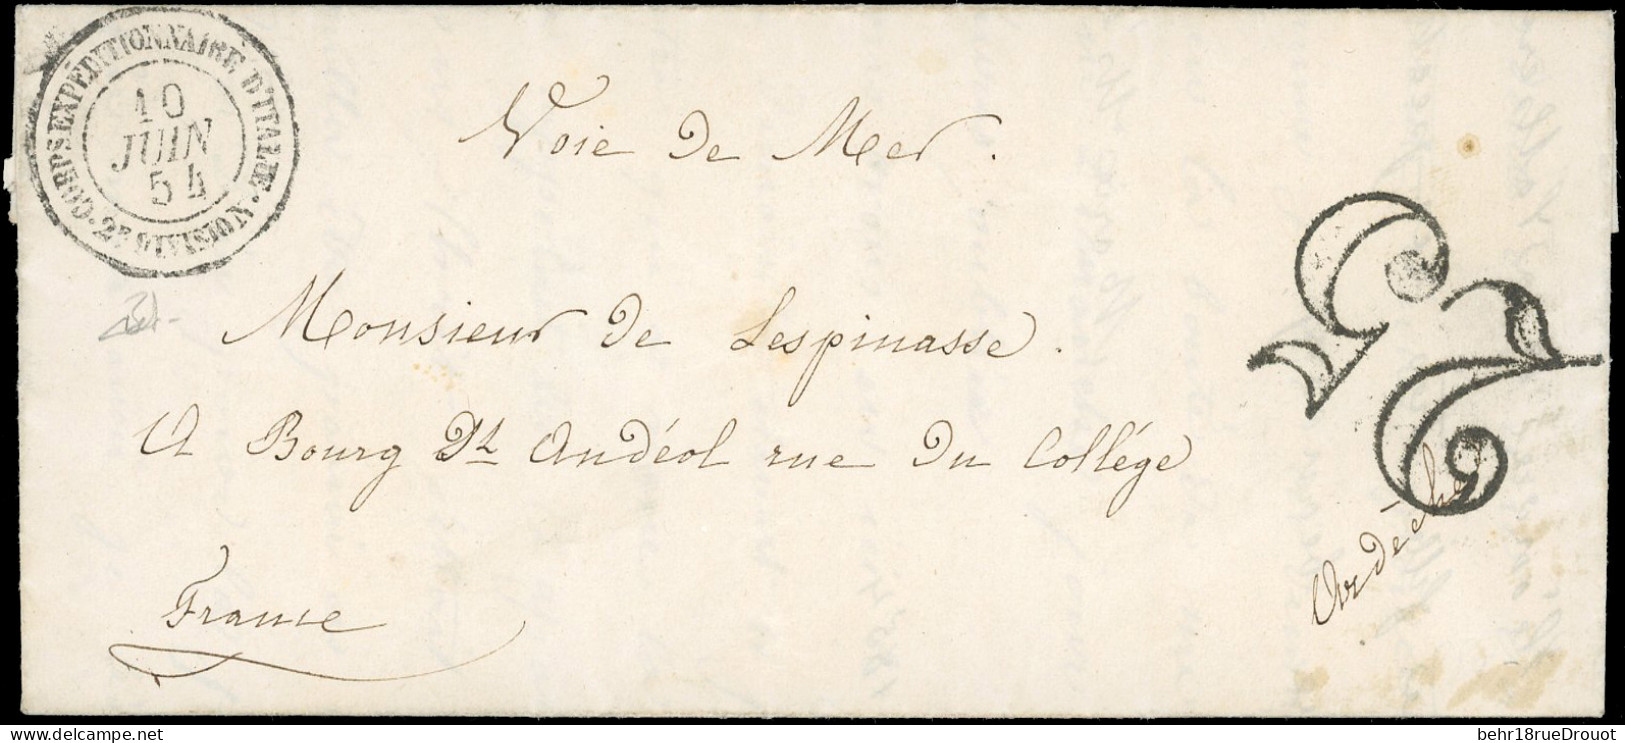 CORPS EXPÉDITIONNAIRE D'ITALIE · 2E DIVISION ·
10
JUIN
54
Voie de Mer.
25
Monsieur de Lespinasse.
A Bourg St Andéol rue du Collége
Ardèche
France
behr18rueDrouot